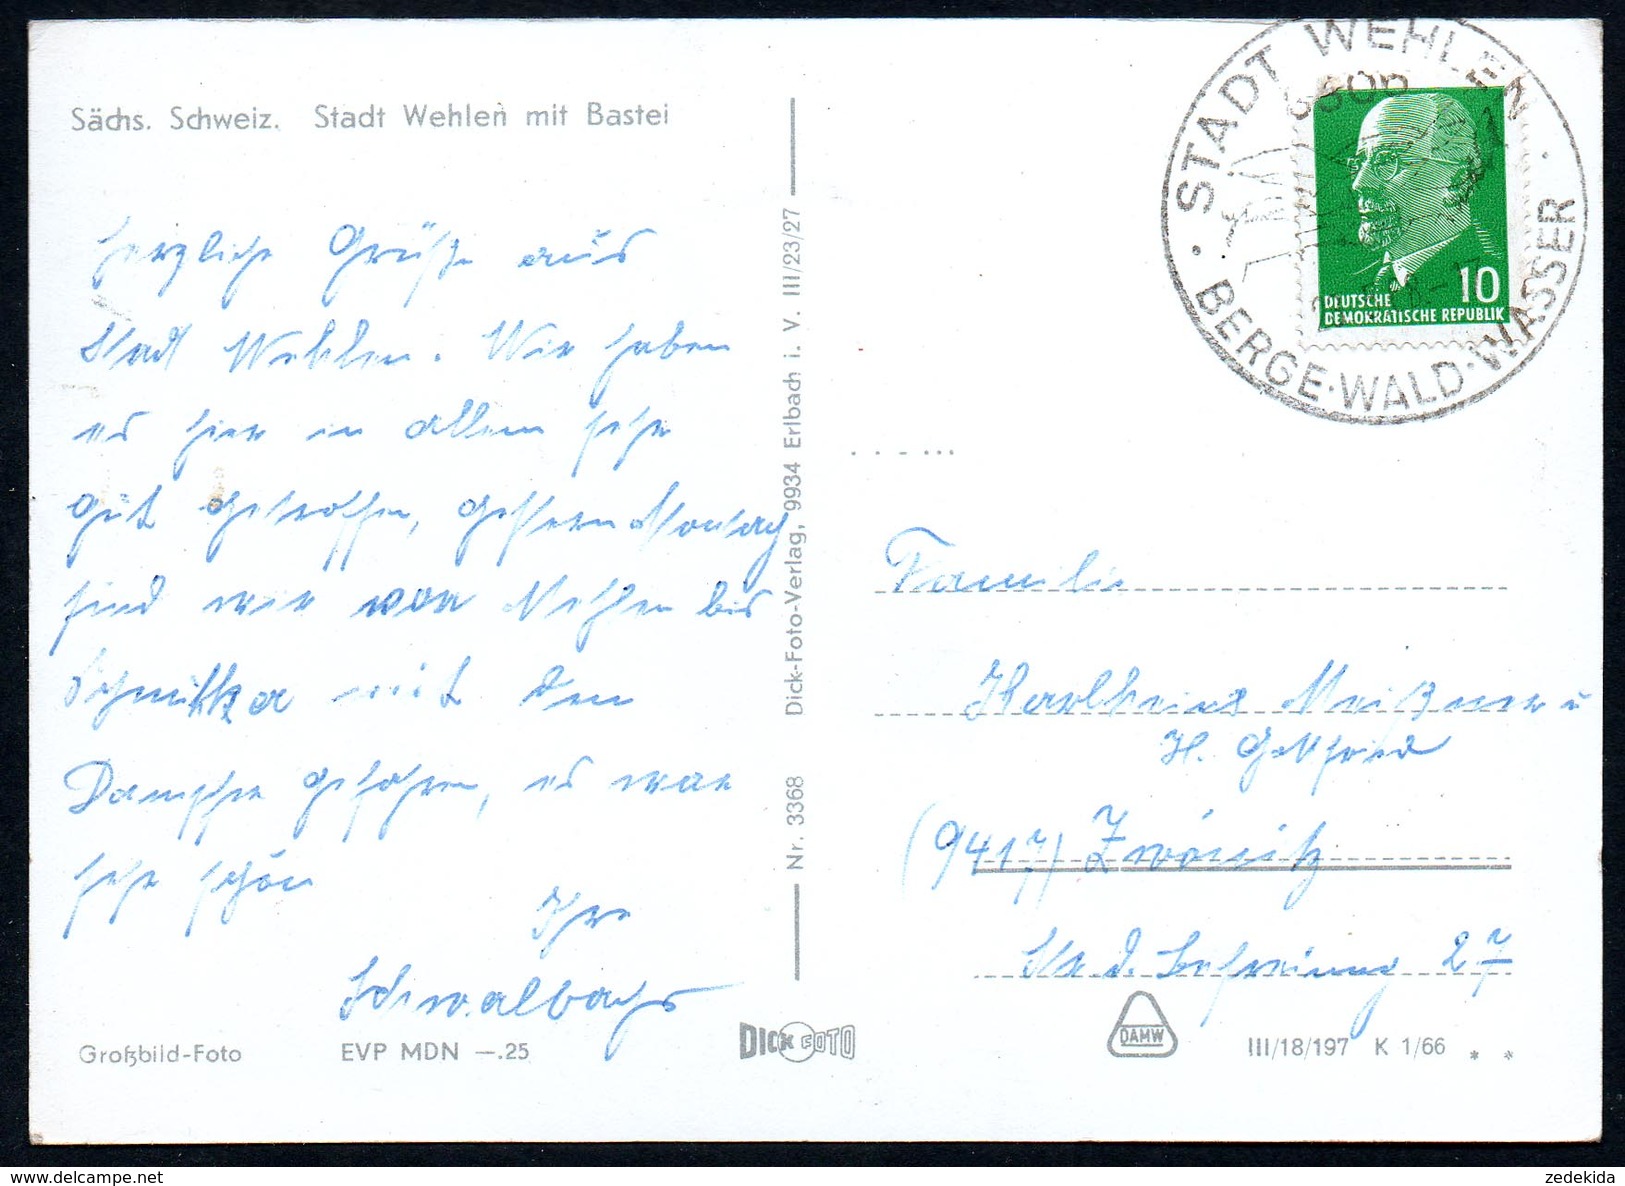 Sächs. Schweiz. Stadt Wehlen mit Bastei
herzliche Grüße aus
Stadt Wehlen. Wir haben
es hier in allem sehr
gut getroffen, gestern Montag
sind wir von Wehlen bis
Schmilka mit dem
Dampfer gefahren, es war
sehr schön
Ihre
Schwalbachs
Großbild-Foto EVP MDN —.25
Nr. 3368 Dick-Foto-Verlag, 9934 Erlbach i. V. III/23/27
DICK FOTO
STADT WEHLEN
BERGE·WALD·WASSER
10
DEUTSCHE
DEMOKRATISCHE REPUBLIK
Familie
Karlheinz Meißner u
H. Gottfried
(9417) Zwönitz
Str. d. Befreiung 27
DAMW
III/18/197 K 1/66 * *
zedekida